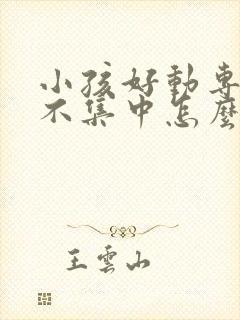 小孩好動專
不集中怎麼
王雲山